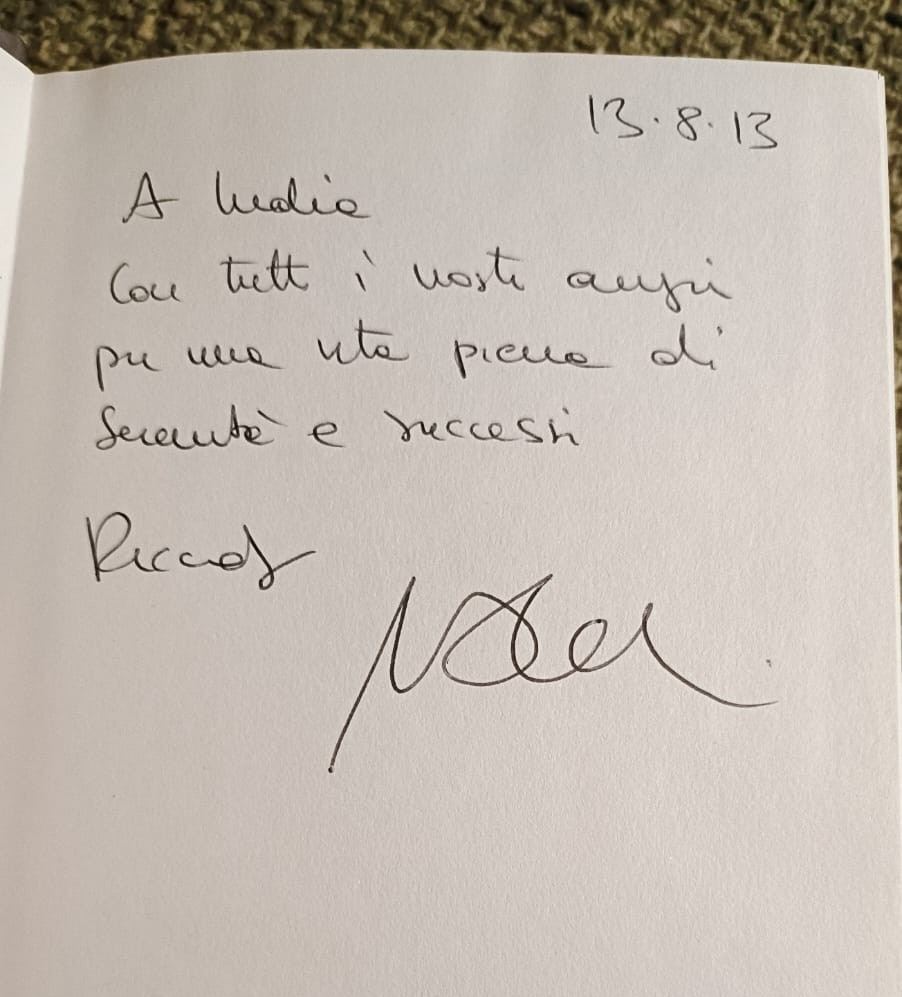 13.8.13
A
Con tutti i nostri auguri
per una vita piena di
Serenità e successi
Riccardo